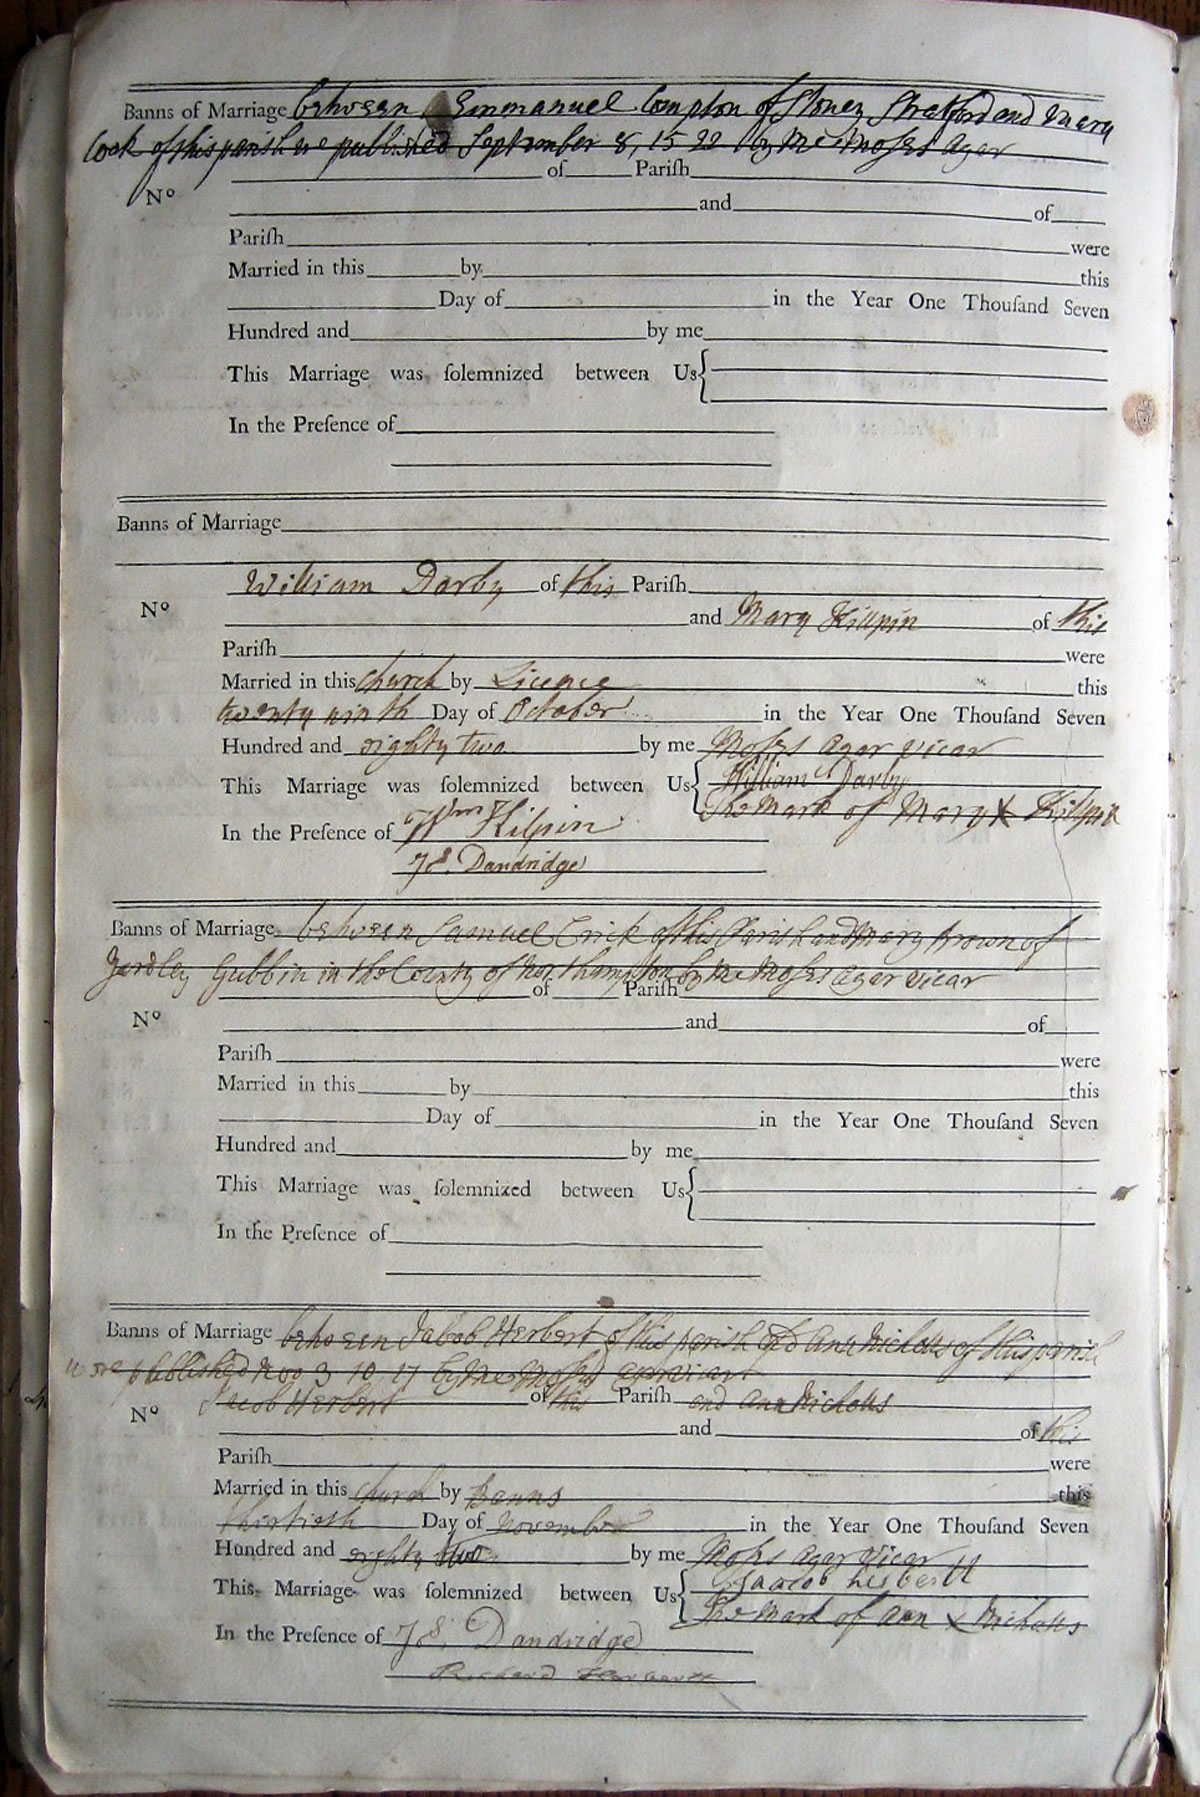 Banns of Marriage between Emmanuel Compton of Stoney Stratford and Mary
Cock of this parish we published September 8, 15 22 by me Moses Agar
of Pariſh
No
and of
Pariſh were
Married in this by this
Day of in the Year One Thouſand Seven
Hundred and by me
This Marriage was ſolemnized between Us
In the Preſence of
Banns of Marriage
William Darby of this Pariſh
No
and Mary Killpin of this
Pariſh were
Married in this church by Licence this
twenty ninth Day of October in the Year One Thouſand Seven
Hundred and eighty two by me Moses Agar vicar
This Marriage was ſolemnized between Us William Darby
The Mark of Mary X Killpin
In the Preſence of Wm Kilpin
Js. Dandridge
Banns of Marriage between Samuel Crick of this Parish and Mary Brown of
Yardley Gubbin in the County of Northampton by me Moses Agar vicar
of Pariſh
No
and of
Pariſh were
Married in this by this
Day of in the Year One Thouſand Seven
Hundred and by me
This Marriage was ſolemnized between Us
In the Preſence of
Banns of Marriage between Jabob Herbert of this parish and Ann Nicholls of this parish
were published Nov 3 10 17 by me Moses Agar vicar
Jacob Herbert of this Pariſh and Ann Nicholls
No
and of this
Pariſh were
Married in this church by Banns this
thirtieth Day of November in the Year One Thouſand Seven
Hundred and eighty two by me Moses Agar vicar
This Marriage was ſolemnized between Us
The Mark of Ann X Nicholls
In the Preſence of Js. Dandridge
Richard